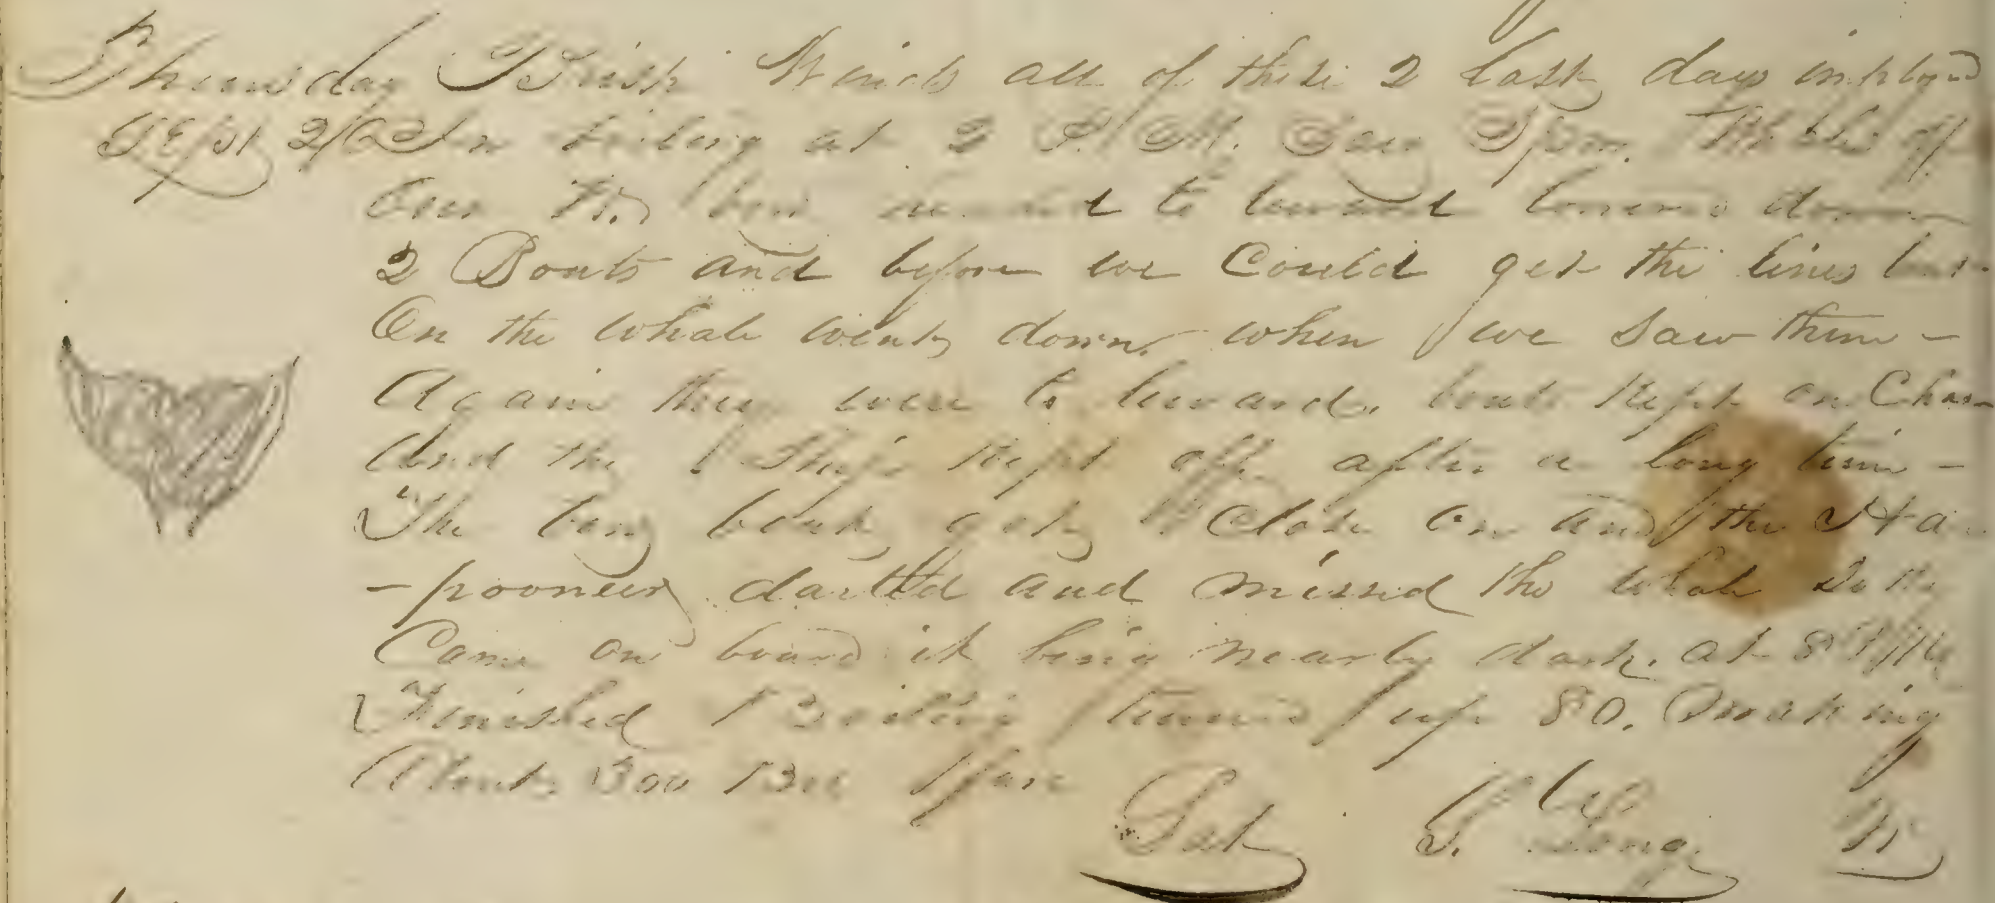 Thursday Brisk Winds all of these 2 last days imployd
Sept 26 In boiling at 2 P.M. Saw Spm. Whales off
Our bow headed to leward lowered down
2 Boats and before we Could get the lines bent
On the whale went down when we saw them -
Again they were to leward. boats kept on Chase
And the Ship kept off after a long time -
The boat got Close on and the Har
-pooneer darted and missed the whale So they
Came on board it being nearly dark. at 8 P.M.
Finished Boiling turned up 80. making
About 300 Bbls
Lat Long